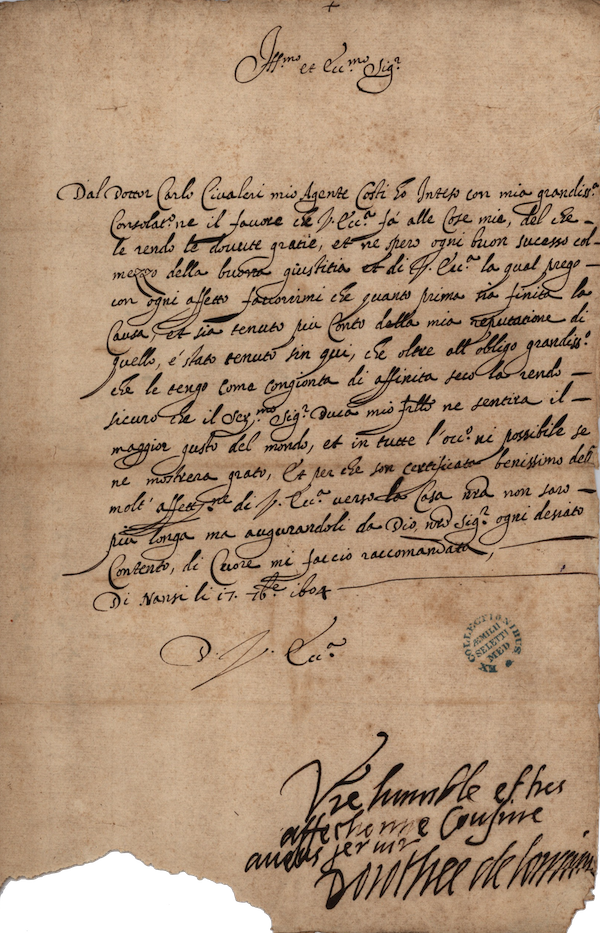 +
Ill.mo et Ecc.mo Sig.r
Dal Dottor Carlo Civaleri mio Agente Costi hò Inteso con mia grandiss.a
Consolat.ne il favore che V. Ecc.a fà alle Cose mie, del che
le rendo le dovute gratie, et ne spero ogni buon sucesso col
mezzo della buona giustitia et di V. Ecc.a la qual prego
con ogni affetto favorirmi che quanto prima sia finita la
Causa, et sia tenuto più Conto della mia reputatione di
quello, è stato tenuto sin qui, che oltre all' obligo grandiss.o
che le tengo come congionta di affinita seco la rendo
sicuro che il Ser.mo Sig.r Duca mio frllo ne sentira il
maggior gusto del mondo, et in tutte l'occ.ni possibile se
ne mostrera grato, Et per che son certificata benissimo della
molt' affett.ne di V. Ecc.a verso la Casa nrã non saro
più longa ma augurandoli da Dio, nrõ Sig.r ogni desiato
Contento, di Cuore mi faccio raccomandata,
Di Nansi li 17. 7bre 1604
D. V. Ecc.a
EX COLLECTIONIBUS
ÆMILII
SELETTI
MED
Vre humble et tres
affectionne Cousine
a vous servir
Dorothee de lorraine